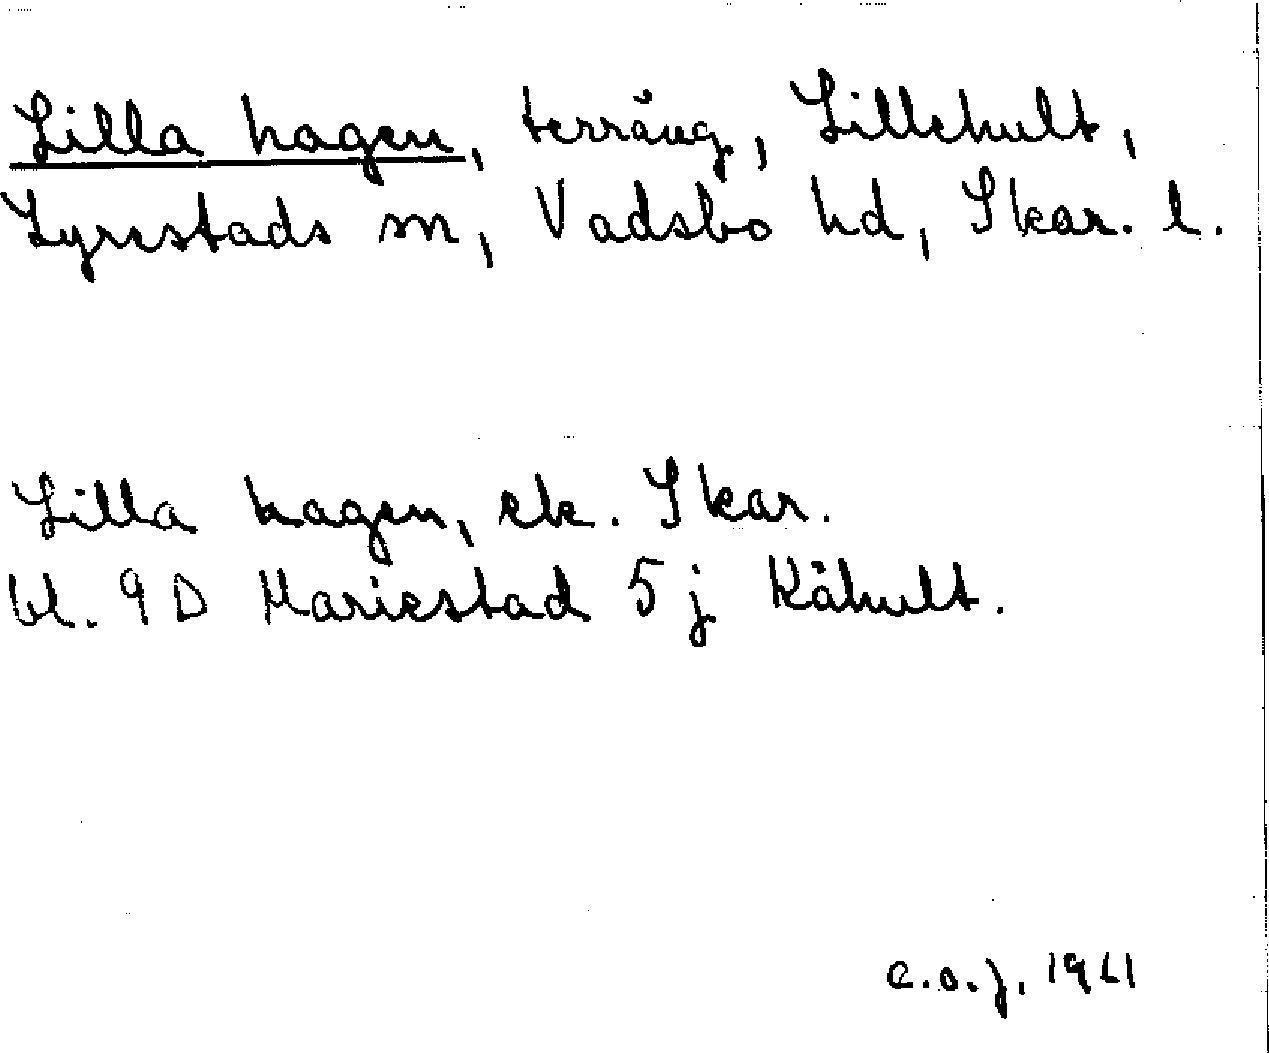 Lilla hagen, terräng, Lillehult,
Lyrestads sn, Vadsbo hd, Skar. l.
Lilla hagen, ek. Skar.
bl. 9 D Mariestad 5 j Kåhult.
c.o.j. 1961